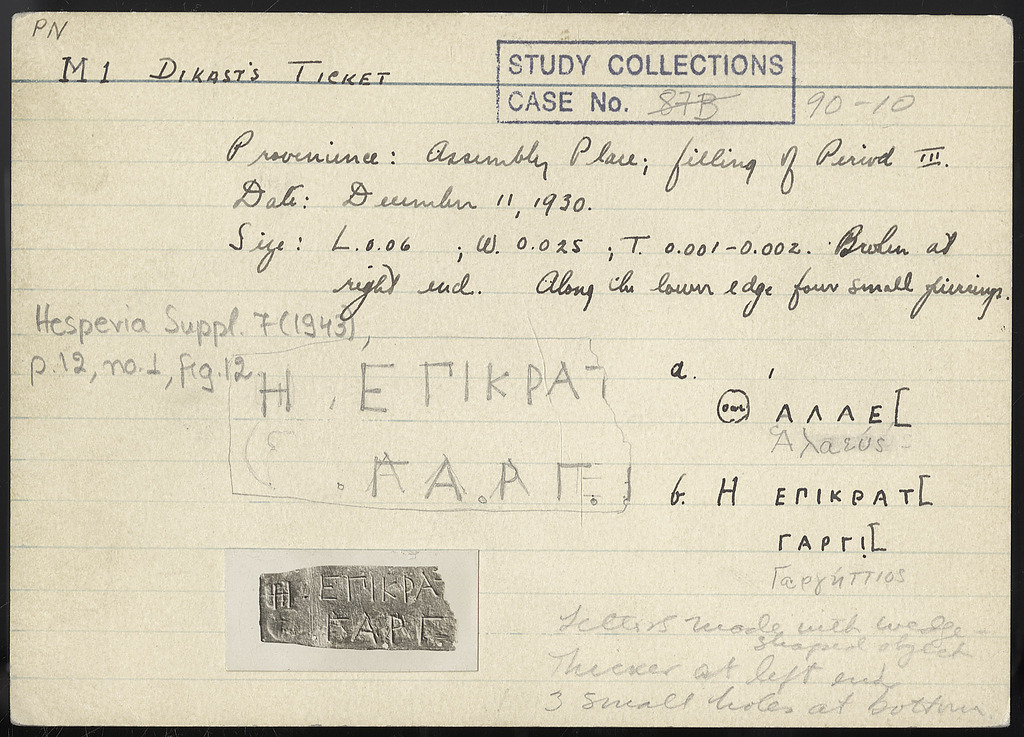 PN
M 1 DIKAST'S TICKET
STUDY COLLECTIONS
CASE No. 87B 90-10
Provenience: Assembly Place; filling of Period III.
Date: December 11, 1930.
Size: L. 0.06 ; W. 0.025 ; T. 0.001-0.002. Broken at
right end. Along the lower edge four small piercings.
Hesperia Suppl. 7 (1943),
p.12, no.1, fig.12
Η . ΕΠΙΚΡΑΤ
ΓΑΡΓ
a.
ΑΛΛΕ[
Ἁλαεύς -
b. Η ΕΠΙΚΡΑΤ[
ΓΑΡΓΙ[
Γαργήττιος
Η . ΕΠΙΚΡΑ
ΓΑΡΓ
Letters made with wedge-
shaped object
Thicker at left end
3 small holes at bottom